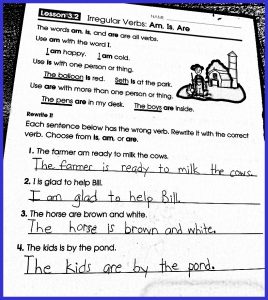 Lesson 3.2 Irregular Verbs: Am, Is, Are
NAME
The words am, is, and are are all verbs.
Use am with the word I.
I am happy. I am cold.
Use is with one person or thing.
The balloon is red. Seth is at the park.
Use are with more than one person or thing.
The pens are in my desk. The boys are inside.
Rewrite It
Each sentence below has the wrong verb. Rewrite it with the correct
verb. Choose from is, am, or are.
1. The farmer am ready to milk the cows.
The farmer is ready to milk the cows.
2. I is glad to help Bill.
I am glad to help Bill.
3. The horse are brown and white.
The horse is brown and white.
4. The kids is by the pond.
The kids are by the pond.